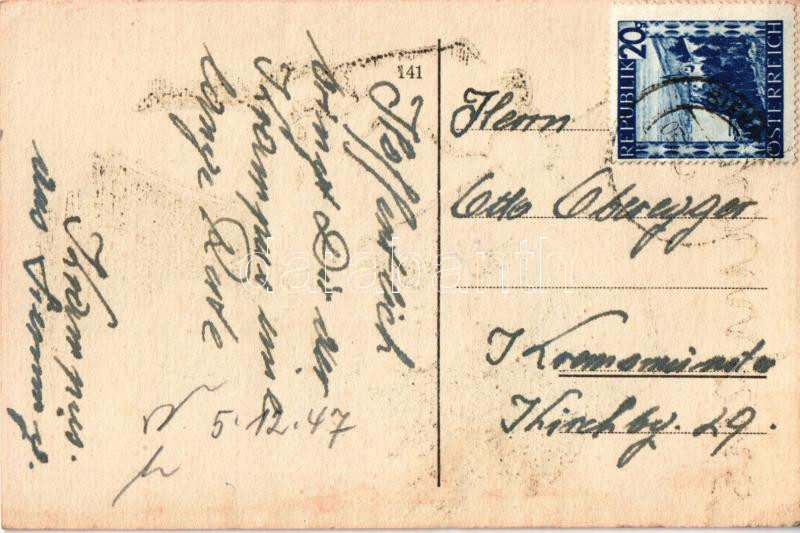 141
Hoffentlich
bringt Dir der
Krampus eine
lange Rute
Krampus
aus
5.12.47
Herrn
Otto Oberegger
Kremsmünster
Kirchbg. 29.
20g
REPUBLIK
ÖSTERREICH
darabanth